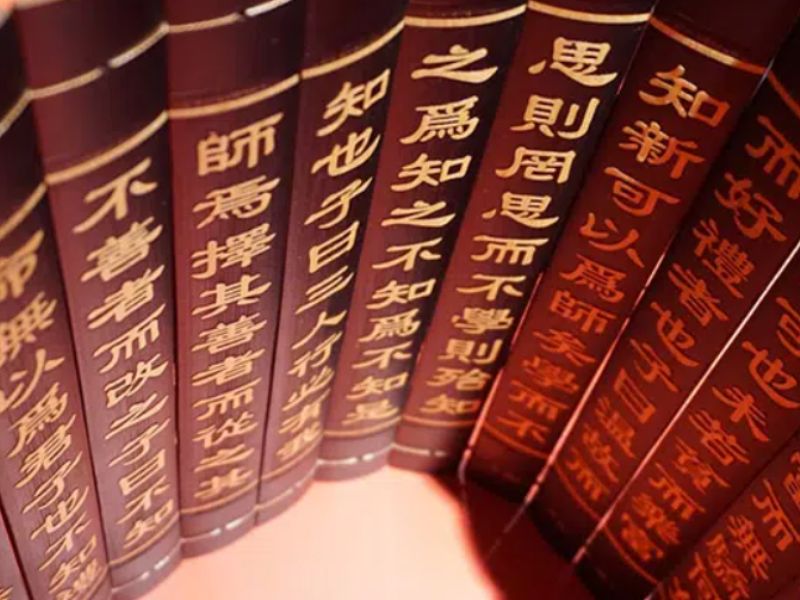 而無驕
可也未若貧而樂富
而好禮者也子曰溫故而
知新可以爲師矣學而不
思則罔思而不學則殆知
之爲知之不知爲不知是
知也子曰三人行必有我
師焉擇其善者而從之其
不善者而改之子曰不知
命無以爲君子也不知禮